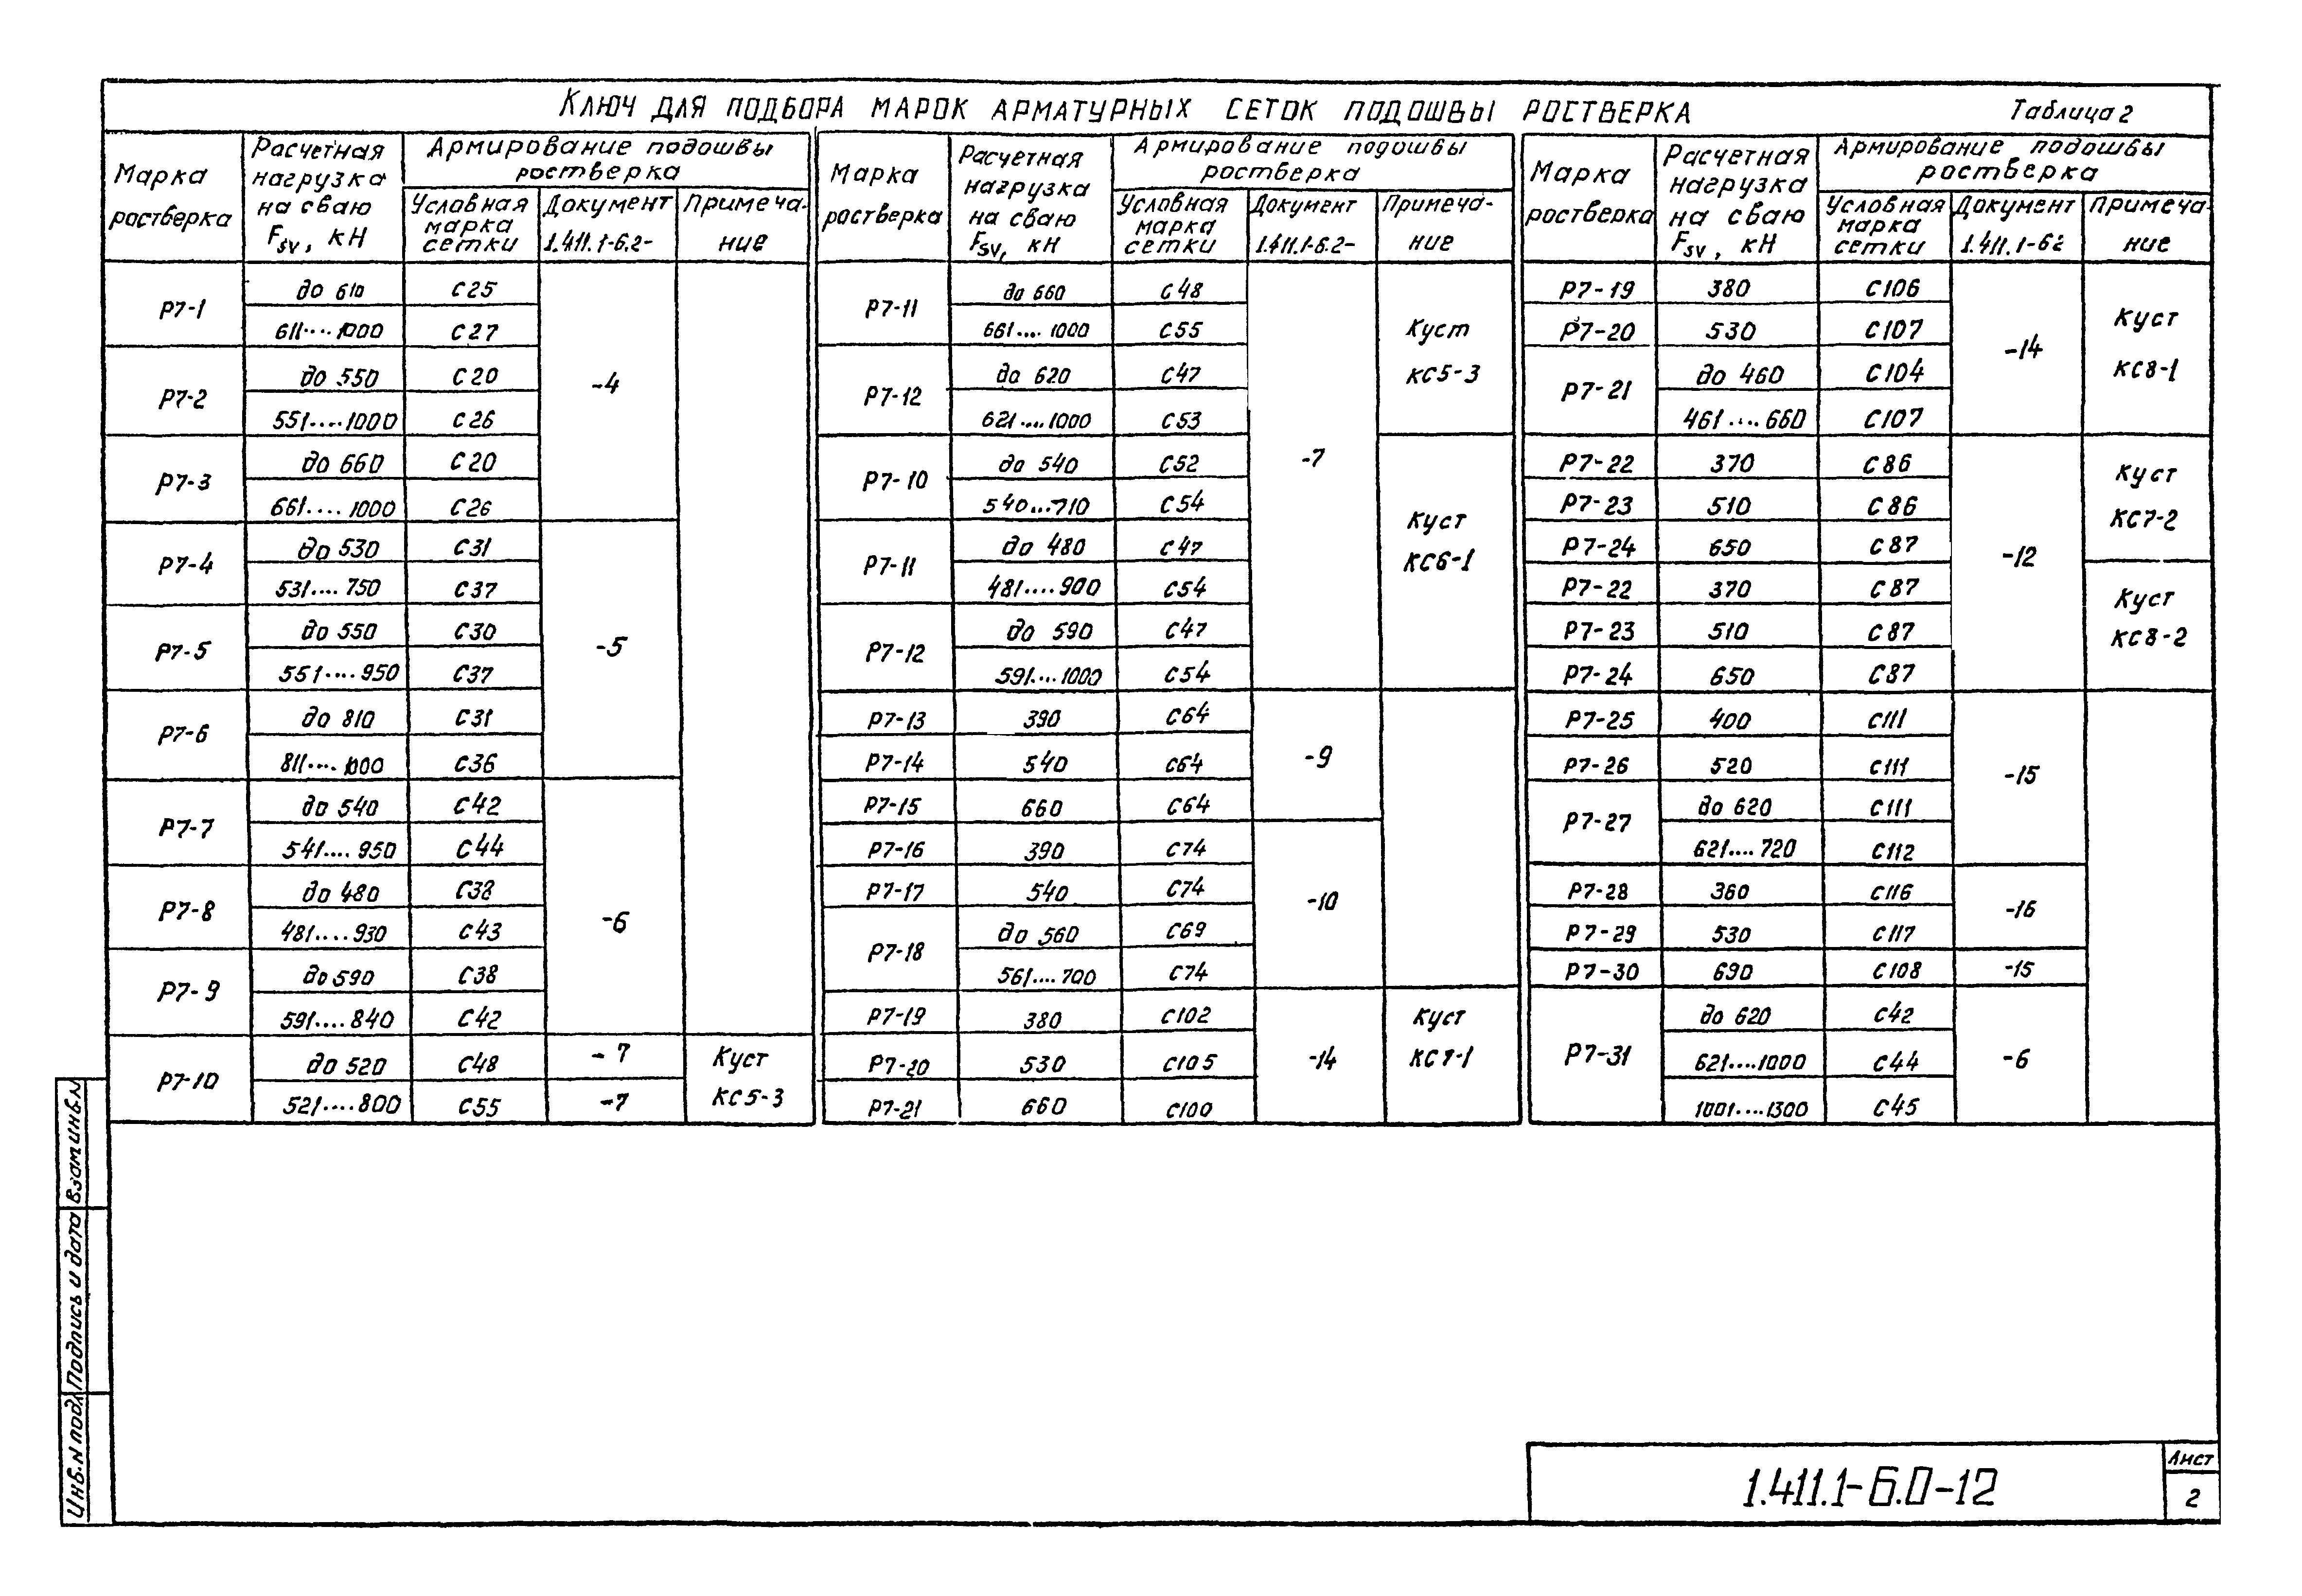 Ключ для подбора марок арматурных сеток подошвы ростверка
Таблица 2
Марка ростверка | Расчетная нагрузка на сваю Fsv, кН | Армирование подошвы ростверка
Условная марка сетки | Документ 1.411.1-6.2- | Примечание
Р7-1 | до 610 | С25 | -4
611....1000 | С27
Р7-2 | до 550 | С20
551....1000 | С26
Р7-3 | до 660 | С20
661....1000 | С26
Р7-4 | до 530 | С31 | -5
531.... 750 | С37
Р7-5 | до 550 | С30
551....950 | С37
Р7-6 | до 810 | С31
811....1000 | С36
Р7-7 | до 540 | С42 | -6
541.... 950 | С44
Р7-8 | до 480 | С38
481....930 | С43
Р7-9 | до 590 | С38
591....840 | С42
Р7-10 | до 520 | С48 | -7 | Куст КС5-3
521....800 | С55 | -7
Марка ростверка | Расчетная нагрузка на сваю Fsv, кН | Армирование подошвы ростверка
Условная марка сетки | Документ 1.411.1-6.2- | Примечание
Р7-11 | до 660 | С48 | -7 | Куст КС5-3
661.... 1000 | С55
Р7-12 | до 620 | С47
621....1000 | С53
Р7-10 | до 540 | С52 | Куст КС6-1
540...710 | С54
Р7-11 | до 480 | С47
481....900 | С54
Р7-12 | до 590 | С47
591....1000 | С54
Р7-13 | 390 | С64 | -9
Р7-14 | 540 | С64
Р7-15 | 660 | С64
Р7-16 | 390 | С74 | -10
Р7-17 | 540 | С74
Р7-18 | до 560 | С69
561....700 | С74
Р7-19 | 380 | С102 | -14 | Куст КС7-1
Р7-20 | 530 | С105
Р7-21 | 660 | С100
Марка ростверка | Расчетная нагрузка на сваю Fsv, кН | Армирование подошвы ростверка
Условная марка сетки | Документ 1.411.1-62 | Примечание
Р7-19 | 380 | С106 | -14 | Куст КС8-1
Р7-20 | 530 | С107
Р7-21 | до 460 | С104
461....660 | С107
Р7-22 | 370 | С86 | -12 | Куст КС7-2
Р7-23 | 510 | С86
Р7-24 | 650 | С87
Р7-22 | 370 | С87 | Куст КС8-2
Р7-23 | 510 | С87
Р7-24 | 650 | С87
Р7-25 | 400 | С111 | -15
Р7-26 | 520 | С111
Р7-27 | до 620 | С111
621.... 720 | С112
Р7-28 | 360 | С116 | -16
Р7-29 | 530 | С117
Р7-30 | 690 | С108 | -15
Р7-31 | до 620 | С42 | -6
621....1000 | С44
1001....1300 | С45
Инв.N подл.
Подпись и дата
Взам инв.N
1.411.1-6.0-12
Лист
2